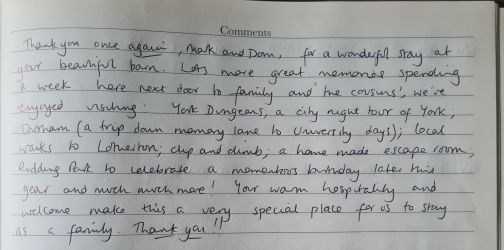 Comments
Thank you once again, Mark and Dom, for a wonderful stay at
your beautiful barn. Lots more great memories spending
a week here next door to family and 'the cousins', we've
enjoyed visiting: York Dungeons; a city night tour of York;
Durham (a trip down memory lane to University days); local
walks to Lotherton; clip and climb; a home made escape room;
Rudding Park to celebrate a momentous birthday later this
year and much much more! Your warm hospitality and
welcome make this a very special place for us to stay
as a family. Thank you!!